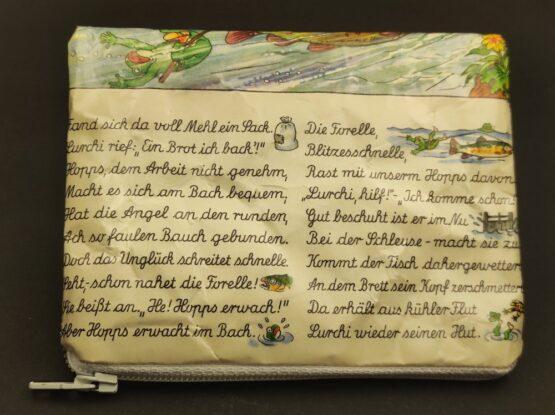 Fand sich da voll Mehl ein Sack.
Lurchi rief: „Ein Brot ich back'!"
Hopps, dem Arbeit nicht genehm,
Macht es sich am Bach bequem,
Hat die Angel an den runden,
Ach so faulen Bauch gebunden.
Doch das Unglück schreitet schnelle.
Seht - schon nahet die Forelle!
Sie beißt an. „He! Hopps erwach!"
Aber Hopps erwacht im Bach.
Die Forelle,
Blitzesschnelle,
Rast mit unserm Hopps davon.
„Lurchi, hilf!" - „Ich komme schon!
Gut beschuht ist er im Nu
Bei der Schleuse - macht sie zu
Kommt der Fisch dahergewettert
An dem Brett sein Kopf zerschmettert
Da erhält aus kühler Flut
Lurchi wieder seinen Hut.